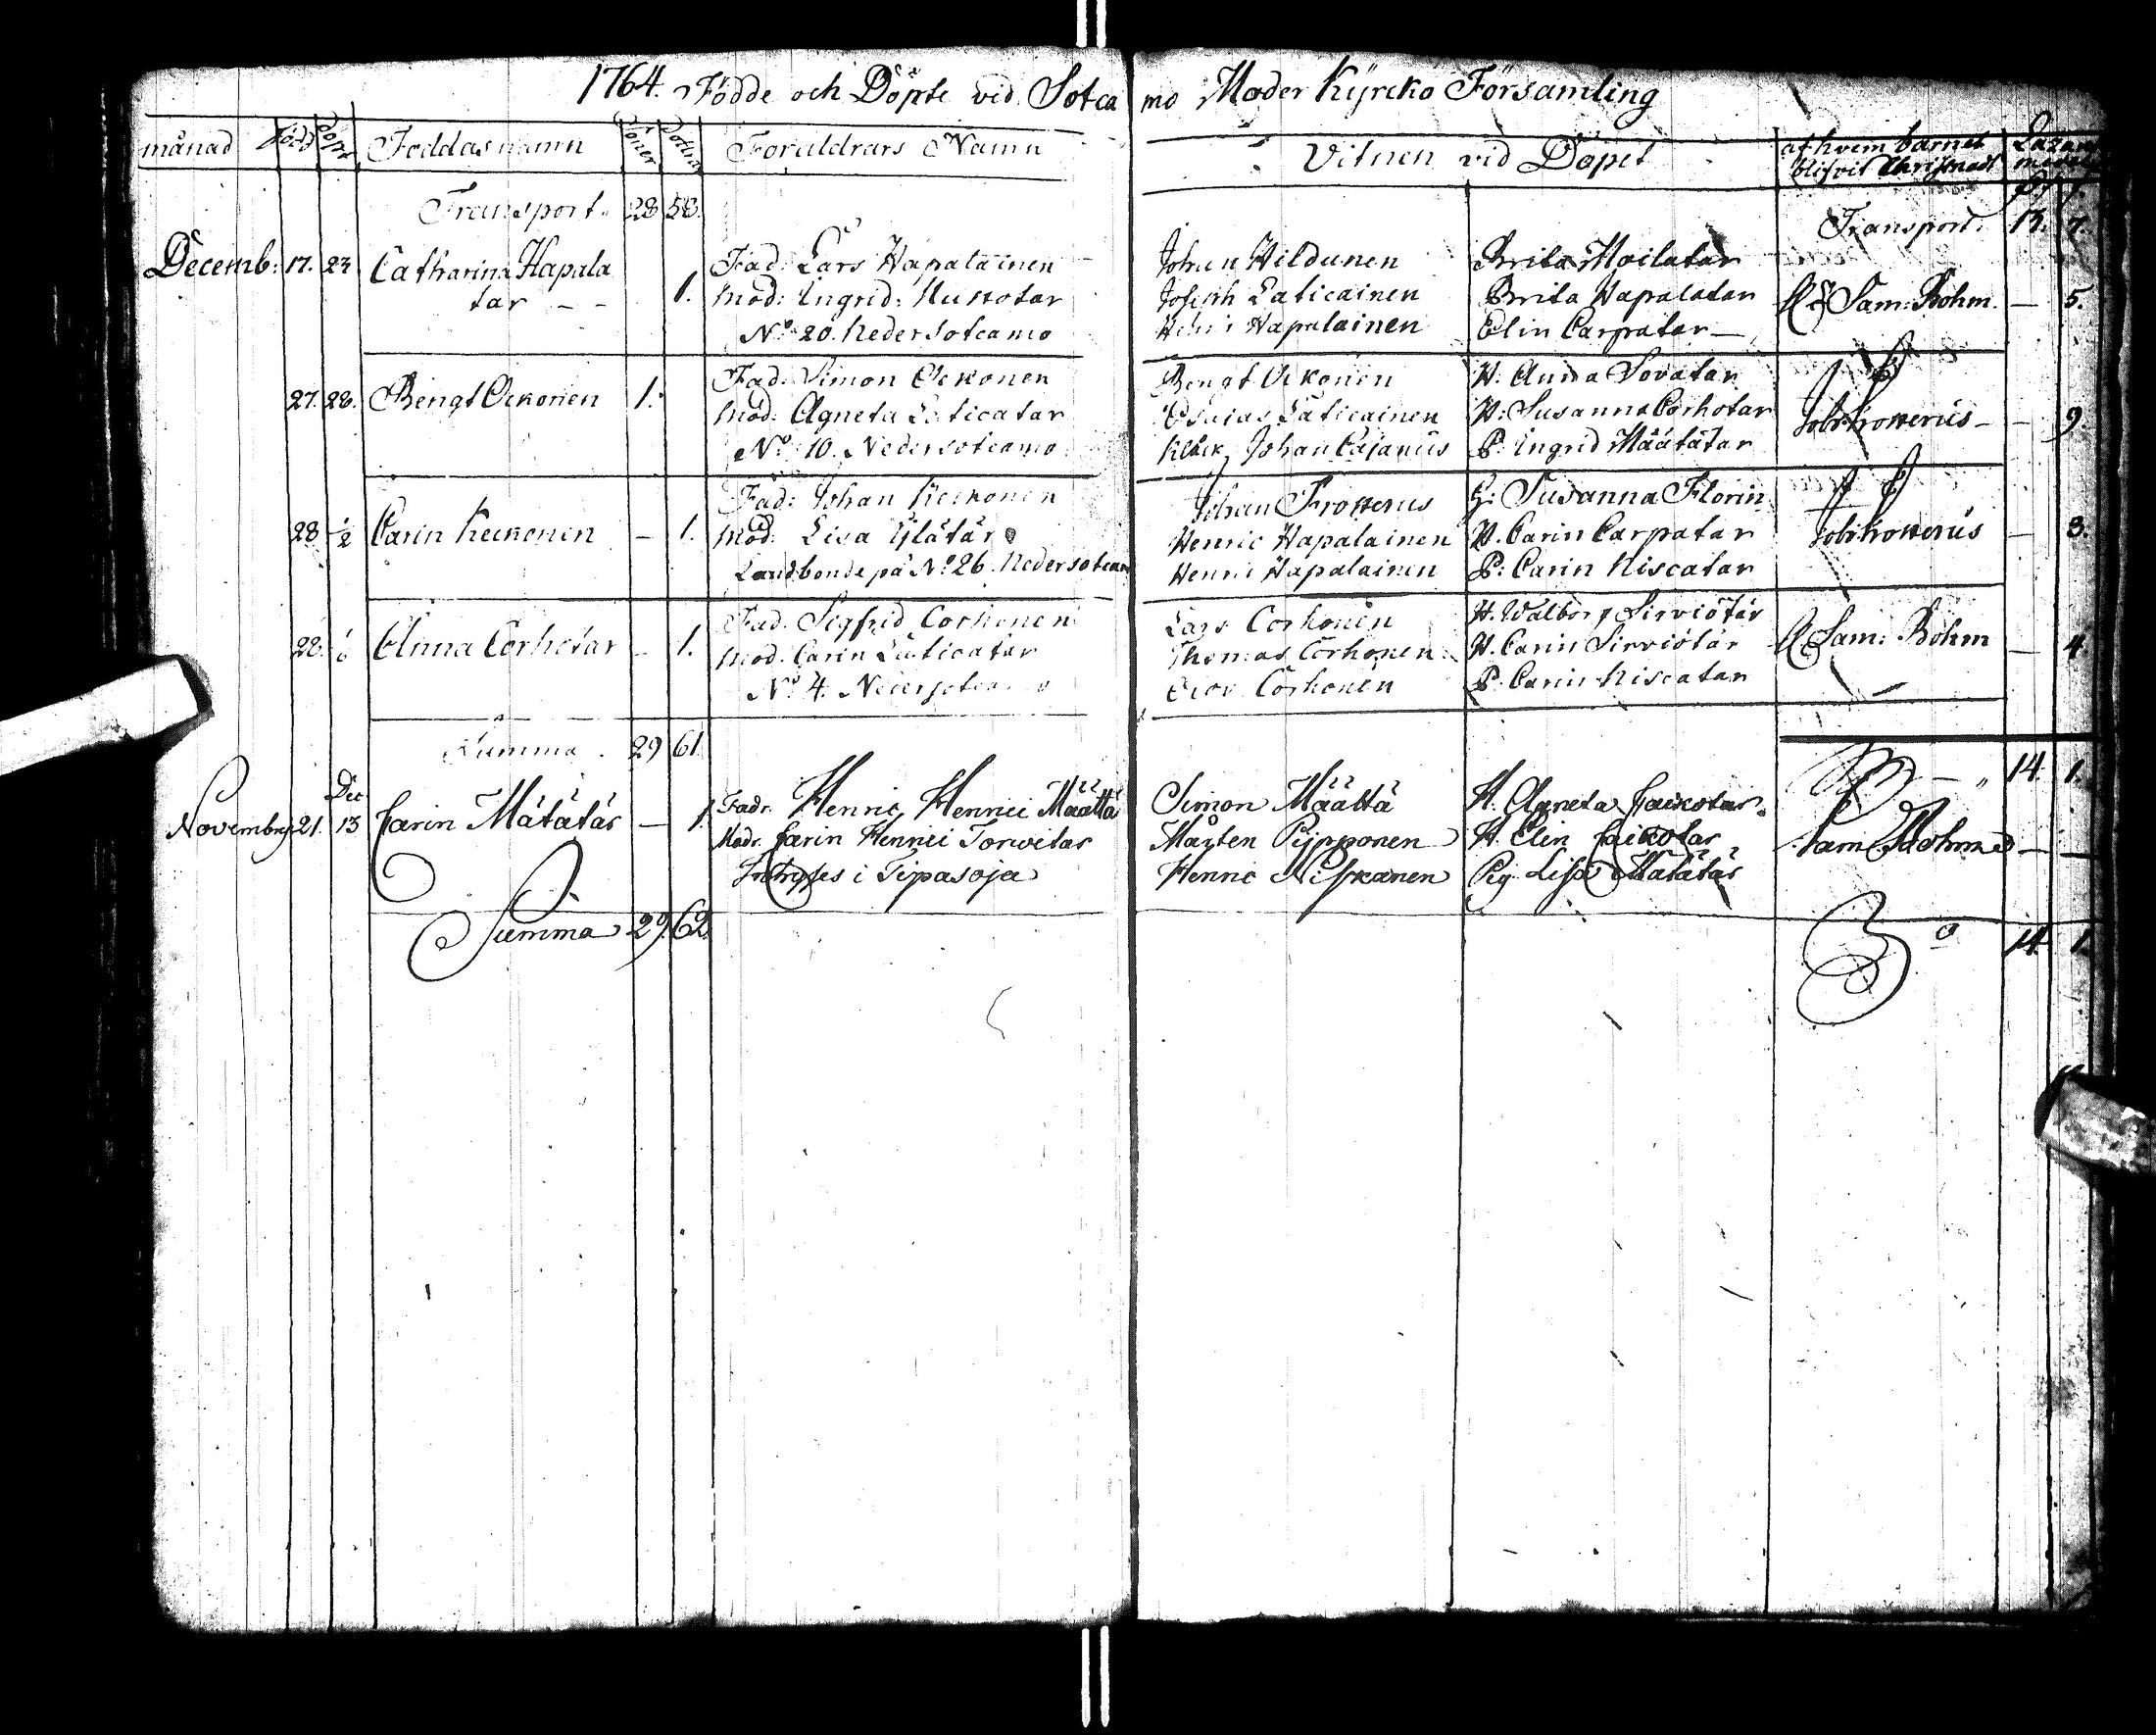 1764. Födde och Döpte vid Sotca mo Moder Kÿrcko Församling
månad Född Döpt Föddas namn Söner Döttrar Föräldrars Namn
Vitnen vid Döpet af hvem barnet blifvit Christnadt
Transport. 28 58.
Transport. 13. 7.
Decemb: 17. 23 Catharina Hapala
tar — — 1.
Fad: Lars Hapalainen
Mod: Ingrid: Huttotar
No 20. Neder Sotcamo
Johan Hildunen Brita Moilatar
Joseph Laticainen Brita Hapalatar Sam: Bohm. — 5.
Henric Hapalainen Elin Carpatar —
27. 28. Bengt Ockonen 1.
Fad: Simon Ockonen
Mod: Agneta Laticatar
No 10. Nedersotcamo
Bengt Ockonen H. Anna Sovatar
Esaias Laticainen H. Susanna Corhotar Joh: Frosterus — — 9
Klåck. Johan Cajanus P. Ingrid Määtätar
28 Carin Keckonen — 1.
Fad: Johan Keckonen
Mod: Lisa
Landbonde på No 26. Nedersotcam
Johan Frosterus Susanna Florin
Henric Hapalainen H. Carin Carpatar Joh: Frosterus — 3.
Henric Hapalainen P: Carin Kiscatar
28. Anna Corhotar — 1.
Fad: Sigfrid Corhonen
Mod: Carin Laticatar
No 4. Nedersotcamo
Lars Corhonen H. Walborg Sirviötär
Thomas Corhonen H. Carin Sirviötär Sam: Bohm — 4.
Corhonen P. Carin Kiscatar
Summa. 29 61.
14 1.
Dec
Novembr 21. 13 Carin Mätätär — 1.
Fadr. Henric Henrici Määttä
Modr. Carin Henrici Torvitar
Inhyses i Tipasoja
Simon Määttä H. Agneta Caikotar
Mårten Pypponen H. Elin Caikotar Sam Bohm —
Henric Niskanen Pig. Lisa Mätätär
Summa 29. 62.
14 1.